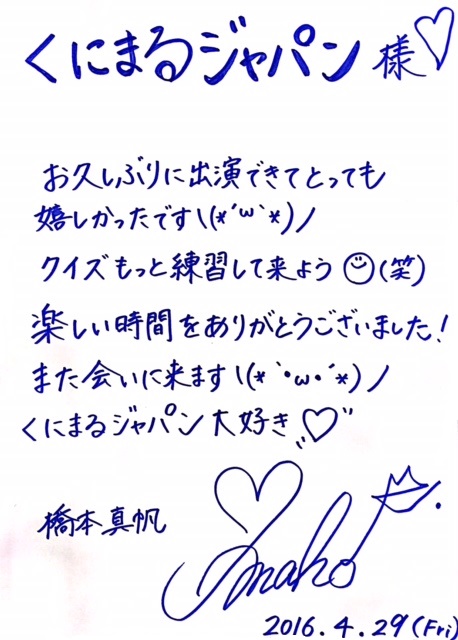 くにまるジャパン 様♡
お久しぶりに出演できてとっても
嬉しかったです\(*´ω`*)ノ
クイズもっと練習して来よう☺(笑)
楽しい時間をありがとうございました!
また会いに来ます\(*`・ω・´*)ノ
くにまるジャパン大好き♡
橋本真帆
maho
2016.4.29(Fri)